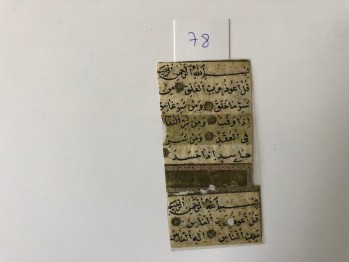 78
بسم الله الرحمن الرحيم
قل اعوذ برب الفلق من
شر ما خلق ومن شر غاسق
اذا وقب ومن شر النفا
في العقد ومن شر
حاسد اذا حسد
بسم الله الرحمن الرحيم
قل اعوذ برب الناس
ملك الناس اله الناس